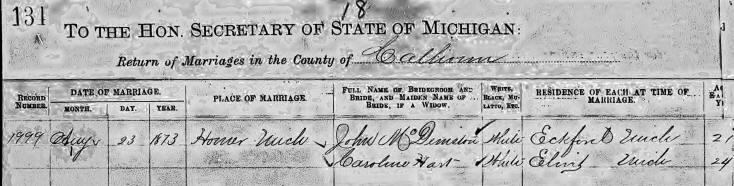 131
18
TO THE HON. SECRETARY OF STATE OF MICHIGAN:
Return of Marriages in the County of Calhoun
RECORD NUMBER. DATE OF MARRIAGE. MONTH. DAY. YEAR. PLACE OF MARRIAGE. FULL NAME OF BRIDEGROOM AND BRIDE, AND MAIDEN NAME OF BRIDE, IF A WIDOW. WHITE, BLACK, MULATTO, ETC. RESIDENCE OF EACH AT TIME OF MARRIAGE.
1999 Augt 23 1873 Homer Mich John McDiniston White Eckford Mich 27
Caroline Hart White Mich 24